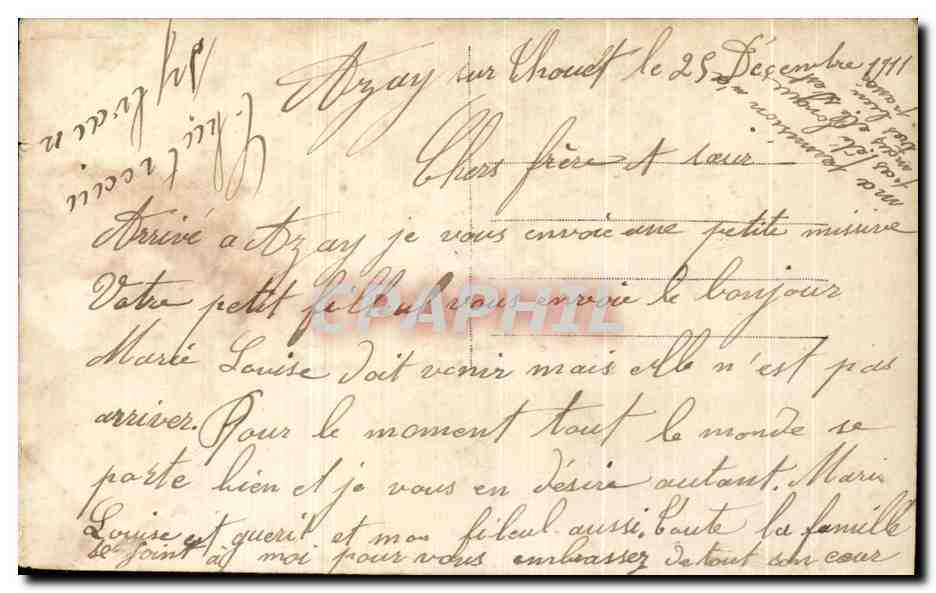 Azay sur Thouet le 25 Décembre 1911
Chers frère et sœur
Arrivé a Azay je vous envoie une petite missive
Votre petit filleul vous envoie le bonjour
Marie Louise doit venir mais elle n'est pas
arriver. Pour le moment tout le monde se
porte bien et je vous en désire autant. Marie
Louise et guerit et mon fileul aussi. Toute la famille
se joint a moi pour vous embrassez de tout son cœur
ma permission n'a
pas été longue
mais elle s'est
bien
passé
CPAPHIL